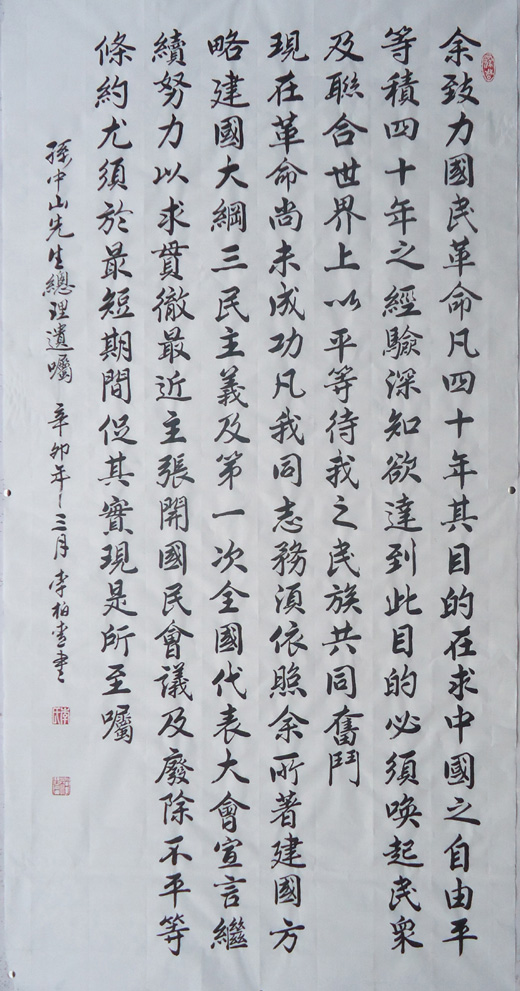 余致力國民革命凡四十年其目的在求中國之自由平
等積四十年之經驗深知欲達到此目的必須喚起民衆
及聯合世界上以平等待我之民族共同奮鬥
現在革命尚未成功凡我同志務須依照余所著建國方
略建國大綱三民主義及第一次全國代表大會宣言繼
續努力以求貫徹最近主張開國民會議及廢除不平等
條約尤須於最短期間促其實現是所至囑
孫中山先生總理遺囑 辛卯年三月 李柏書